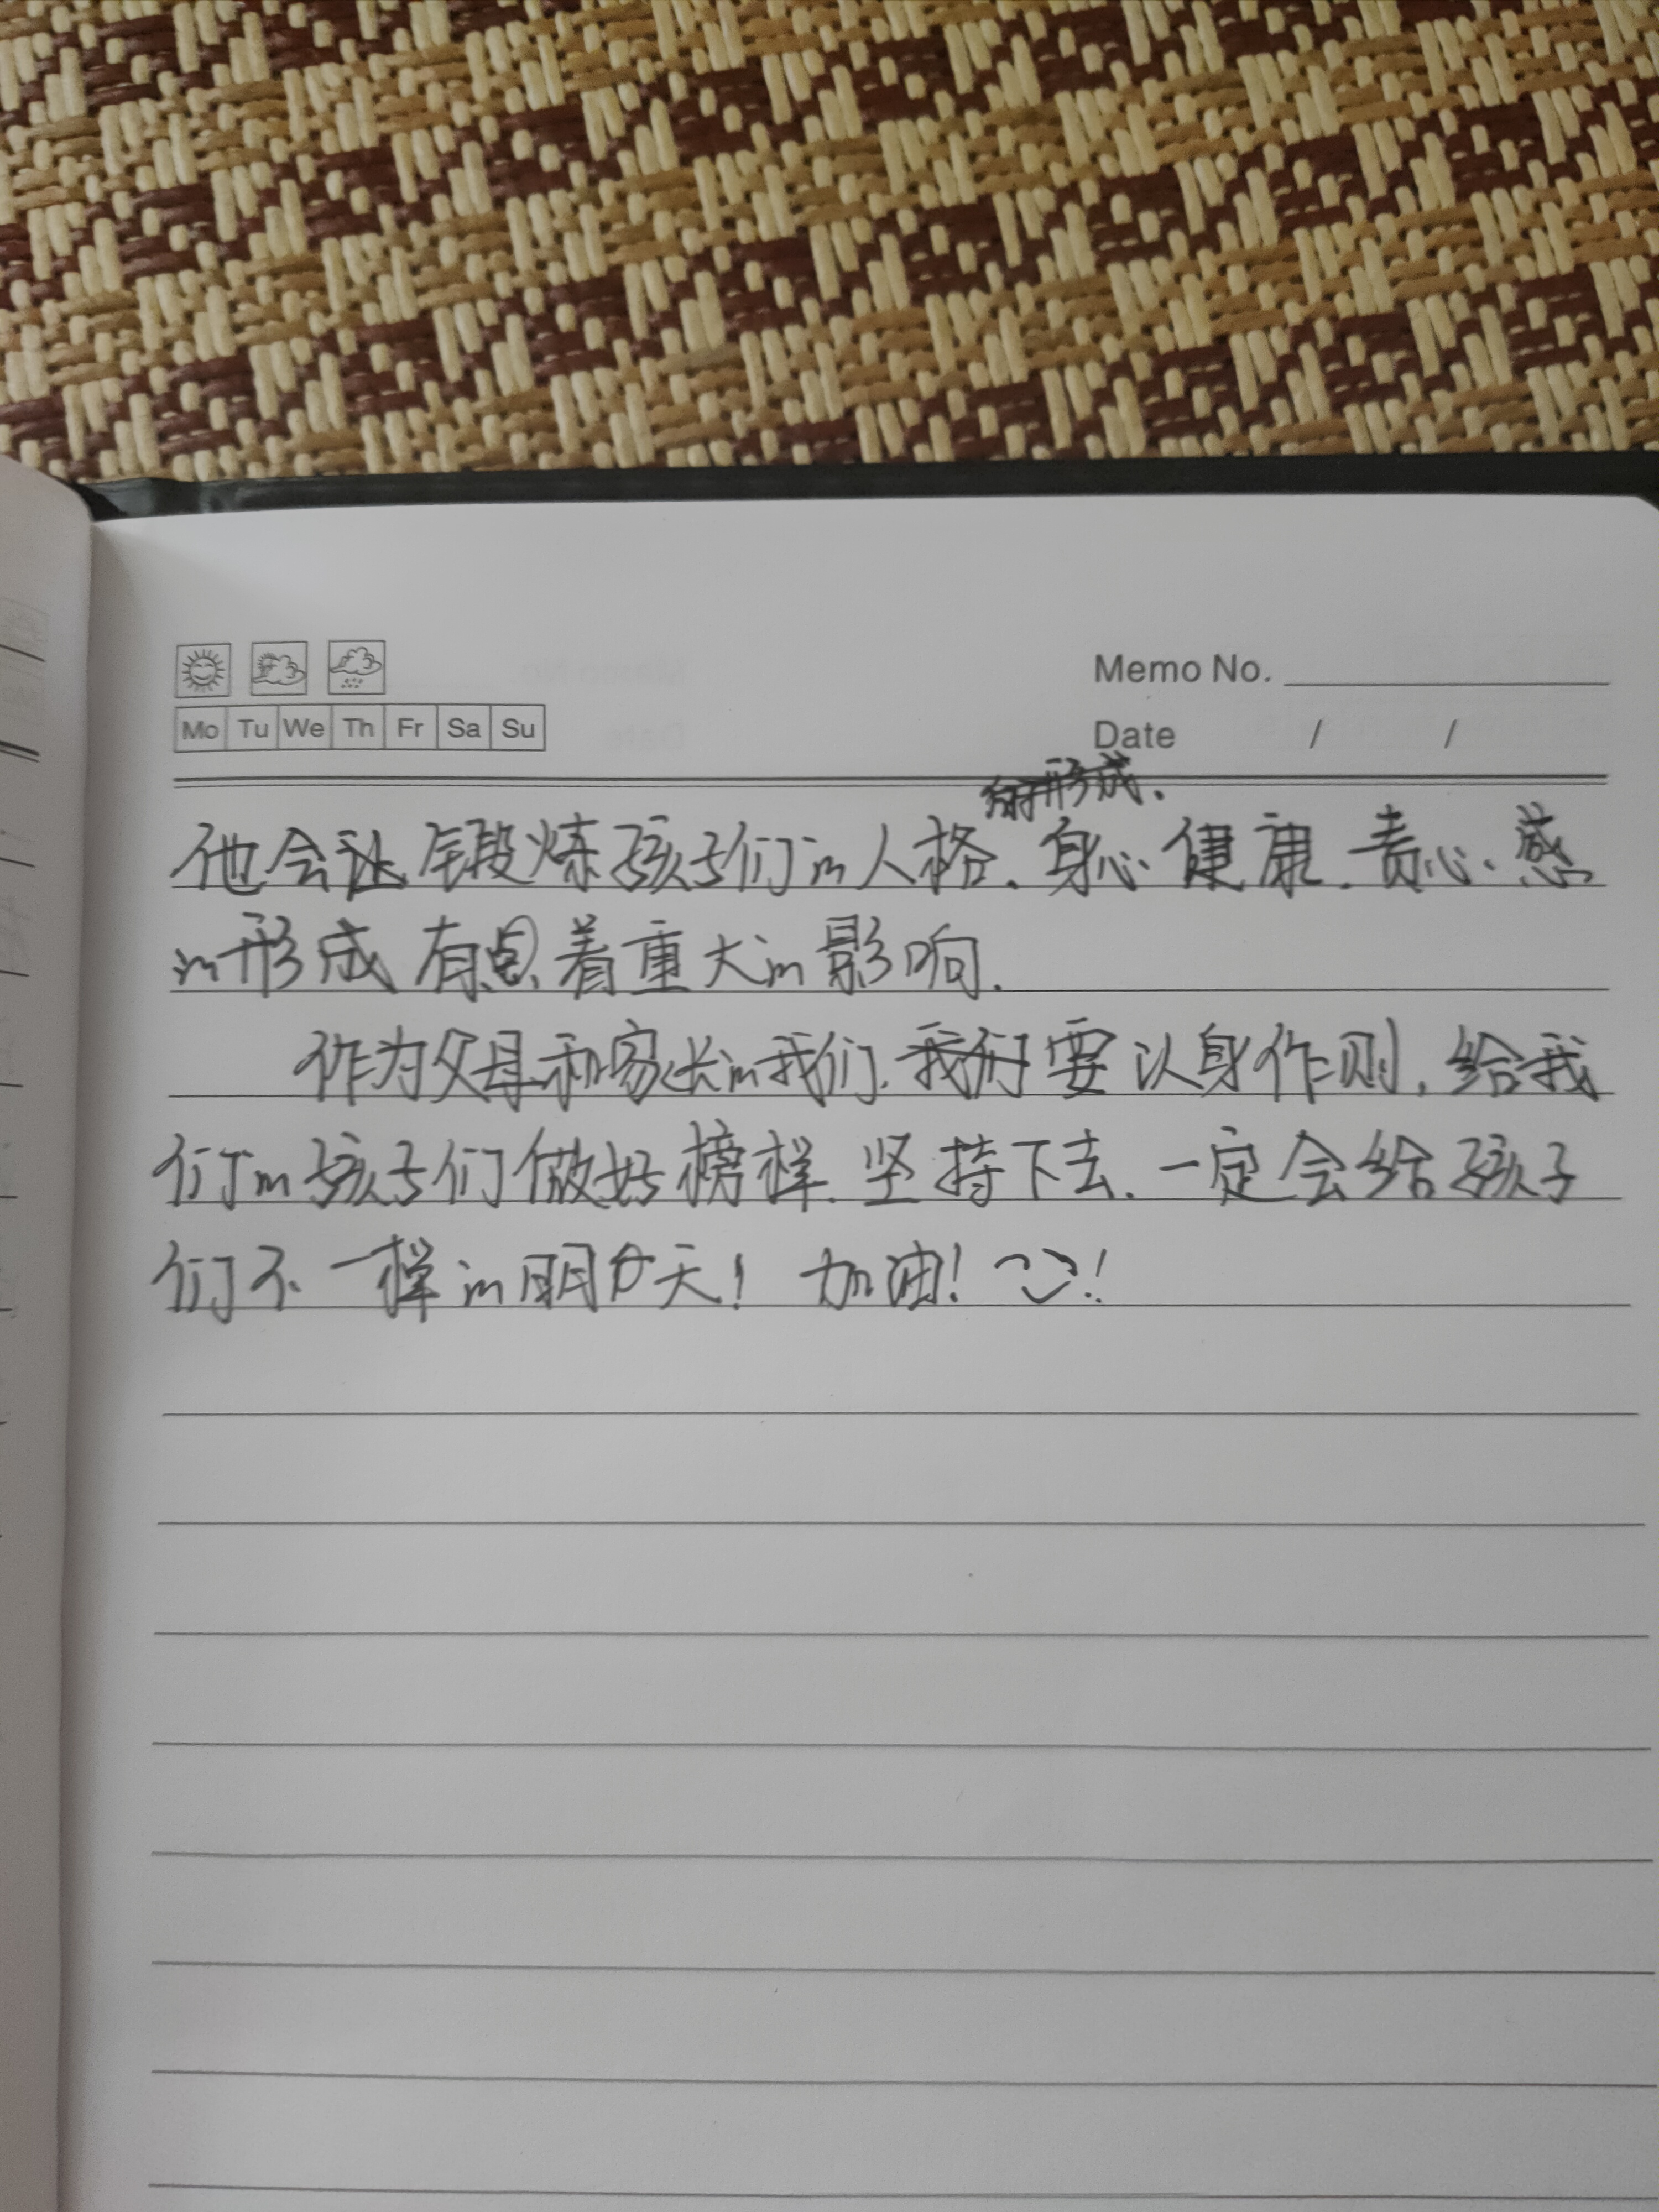 Memo No.
Mo Tu We Th Fr Sa Su
Date / /
形成.
他会让锻炼孩子们的人格、身心健康、责心、感
的形成有着重大的影响.
作为父母和家长的我们.我们要以身作则,给我
们的孩子们做好榜样.坚持下去.一定会给孩子
们不一样的明天!加油!!